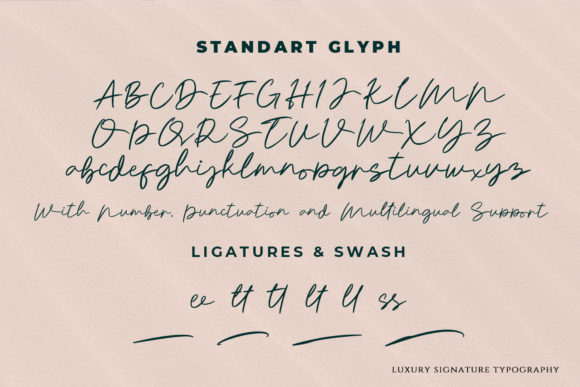 STANDART GLYPH
ABCDEFGHIJKLMN
OPQRSTUVWXYZ
abcdefghijklmnopqrstuvwxyz
With Number, Punctuation and Multilingual Support
LIGATURES & SWASH
ee tt tl lt ll ss
LUXURY SIGNATURE TYPOGRAPHY